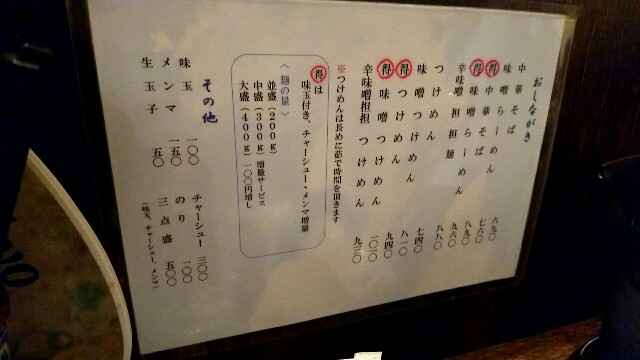 おしながき
中華そば 六九〇
味噌らーめん 七六〇
得 中華そば 八九〇
得 味噌らーめん 九六〇
辛味噌 担担麺 八八〇
つけめん 七四〇
味噌つけめん 八一〇
得 つけめん 九四〇
得 味噌つけめん 一〇一〇
辛味噌担担つけめん 九三〇
※つけめんは長めに茹で時間を頂きます
得は
味玉付き、チャーシュー・メンマ増量
〈麺の量〉
並盛(200g)
中盛(300g)増量サービス
大盛(400g)一〇〇円増し
その他
味玉 一〇〇
メンマ 一五〇
生玉子 五〇
チャーシュー 三〇〇
のり 一〇〇
三点盛 五〇〇
(味玉、チャーシュー、メンマ)